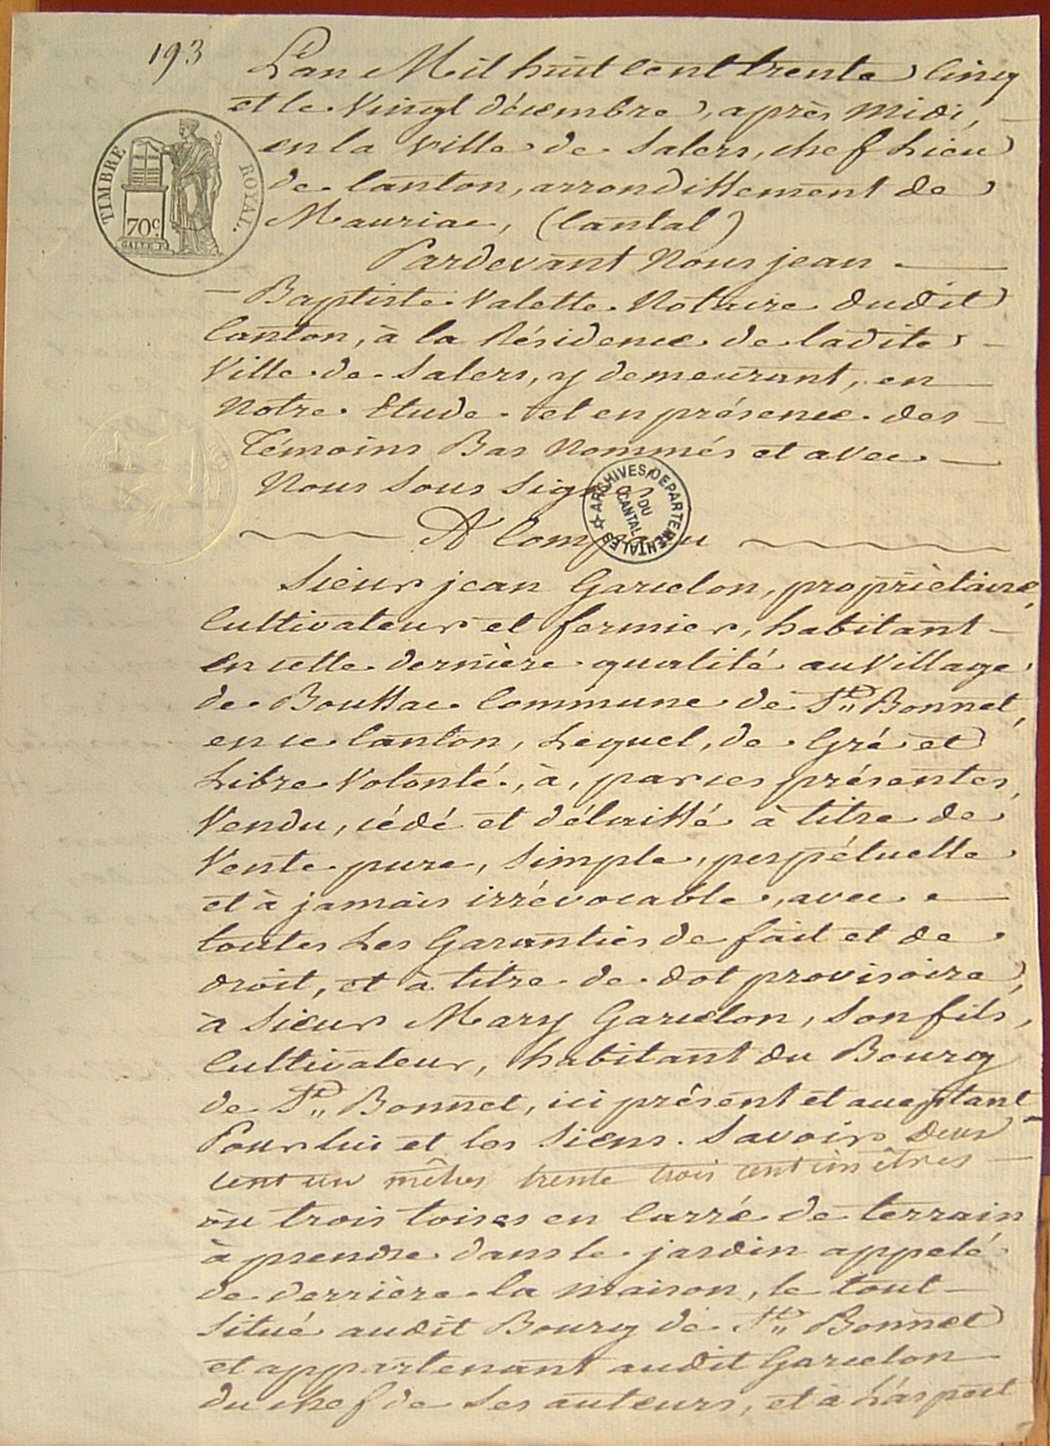 193
L'an Mil huit cent trente cinq
et le Vingt décembre, après midi,
en la Ville de Salers, chef Lieu
de Canton, arrondissement de
Mauriac, (Cantal)
TIMBRE ROYAL.
70c.
Pardevant Nous jean
Baptiste Valette Notaire dudit
Canton, à la Résidence de ladite
Ville de Salers, y demeurant, en
Notre Etude et en présence des
Témoins Bas Nommés et avec
Nous Sous Signés
ARCHIVES DEPARTEMENTALES DU CANTAL
A Comparu
Sieur jean Garcelon, propriètaire,
Cultivateur et fermier, habitant
en cette dernière qualité au Village
de Boussac Commune de St. Bonnet,
en ce Canton, Lequel, de Gré et
Libre Volonté, à, par ces présentes,
Vendu, cédé et délaissé à titre de
Vente pure, Simple, perpétuelle
et à jamais irrévocable, avec
toutes Les Garanties de fait et de
droit, et à titre de dot provisoire,
à Sieur Mary Garcelon, Son fils,
Cultivateur, habitant du Bourg
de St. Bonnet, ici présent et acceptant
Pour lui et les Siens. Savoir
mètres trente trois centimètres
ou trois toises en Carré de terrain
à prendre dans le jardin appelé
de derrière la maison, le tout
Situé audit Bourg de St. Bonnet
et appartenant audit Garcelon
du chef de Ses auteurs, et à L'aspect